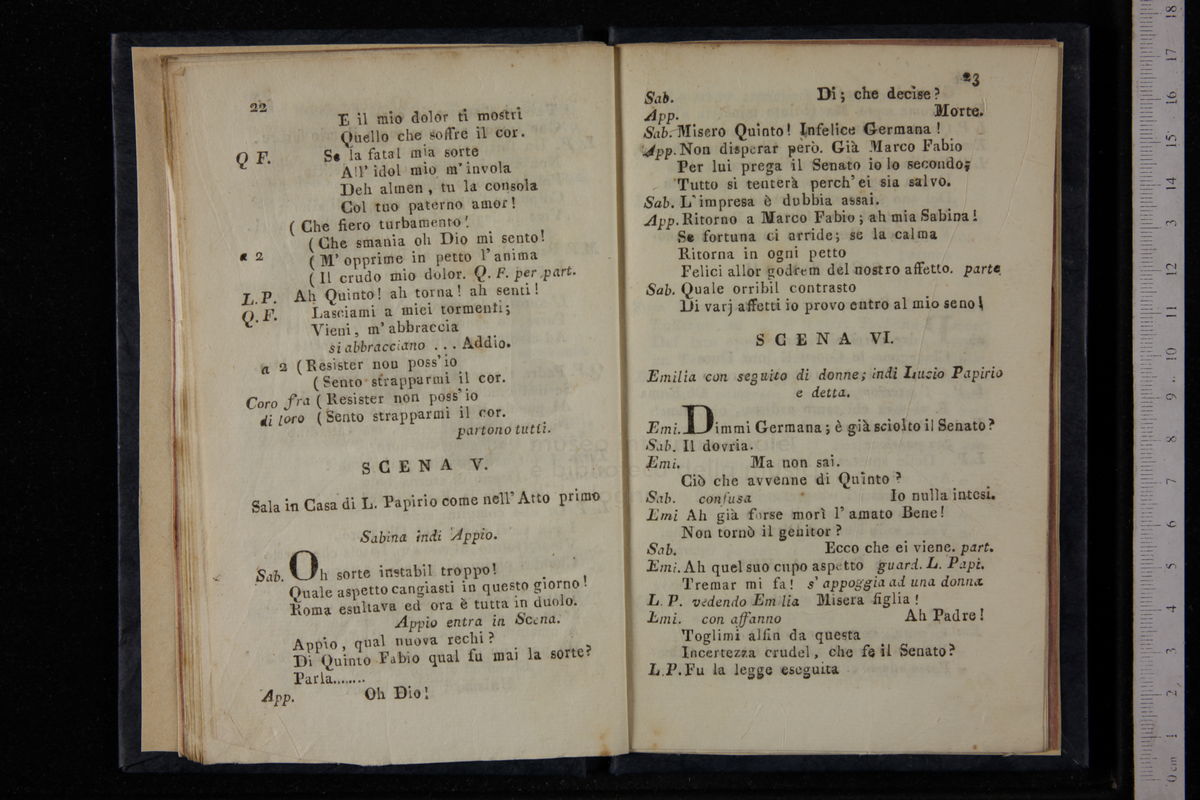 22
E il mio dolor ti mostri
Quello che soffre il cor.
Q F. Se la fatal mia sorte
All' idol mio m' invola
Deh almen, tu la consola
Col tuo paterno amor!
( Che fiero turbamento!
( Che smania oh Dio mi sento!
a 2 ( M' opprime in petto l' anima
( Il crudo mio dolor. Q. F. per part.
L. P. Ah Quinto! ah torna! ah senti!
Q. F. Lasciami a miei tormenti;
Vieni, m' abbraccia
si abbracciano ... Addio.
a 2 (Resister non poss' io
(Sento strapparmi il cor.
Coro fra ( Resister non poss' io
di loro ( Sento strapparmi il cor.
partono tutti.
SCENA V.
Sala in Casa di L. Papirio come nell' Atto primo
Sabina indi Appio.
Sab. Oh sorte instabil troppo!
Quale aspetto cangiasti in questo giorno!
Roma esultava ed ora è tutta in duolo.
Appio entra in Scena.
Appio, qual nuova rechi?
Di Quinto Fabio qual fu mai la sorte?
Parla........
App. Oh Dio!
23
Sab. Di; che decise?
App. Morte.
Sab. Misero Quinto! Infelice Germana!
App. Non disperar però. Già Marco Fabio
Per lui prega il Senato io lo secondo;
Tutto si tenterà perch' ei sia salvo.
Sab. L' impresa è dubbia assai.
App. Ritorno a Marco Fabio; ah mia Sabina!
Se fortuna ci arride; se la calma
Ritorna in ogni petto
Felici allor godrem del nostro affetto. parte
Sab. Quale orribil contrasto
Di varj affetti io provo entro al mio seno!
SCENA VI.
Emilia con seguito di donne; indi Luzio Papirio
e detta.
Emi. Dimmi Germana; è già sciolto il Senato?
Sab. Il dovria.
Emi. Ma non sai.
Ciò che avvenne di Quinto?
Sab. confusa Io nulla intesi.
Emi Ah già forse morì l' amato Bene!
Non tornò il genitor?
Sab. Ecco che ei viene. part.
Emi. Ah quel suo cupo aspetto guard. L. Papi.
Tremar mi fa! s' appoggia ad una donna
L. P. vedendo Emilia Misera figlia!
Emi. con affanno Ah Padre!
Toglimi alfin da questa
Incertezza crudel, che fe il Senato?
L. P. Fu la legge eseguita